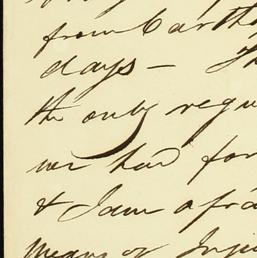 from Cartha
days — Th
the only requ
we had for
& I am afra
means of Inju